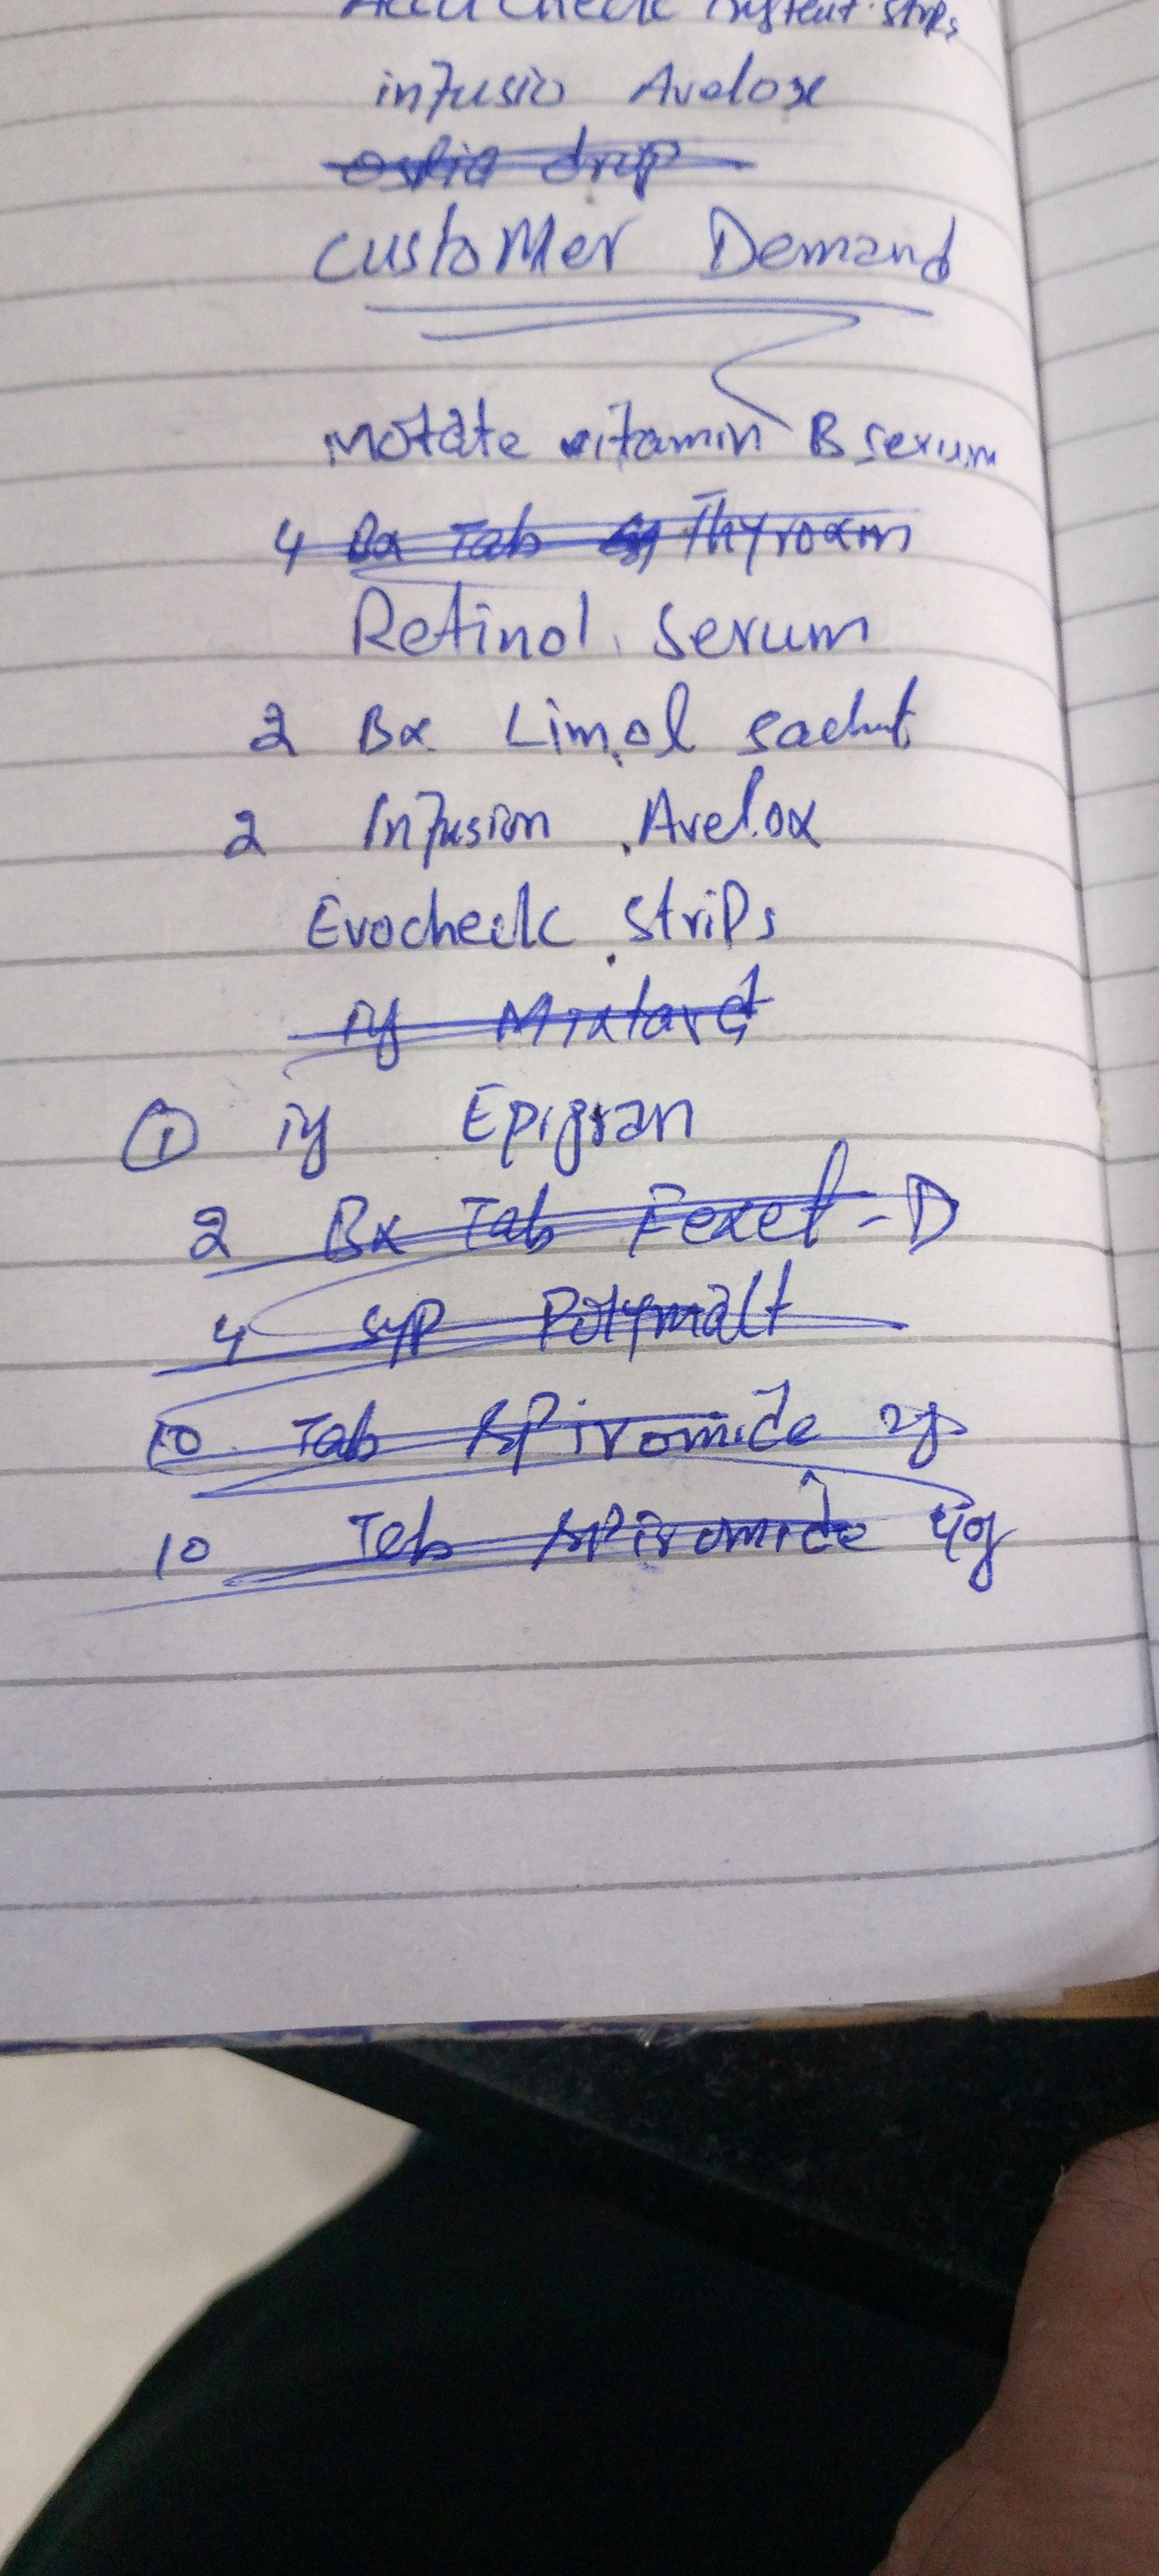 Accu Check instent strips
infusio Avelox
drop
Customer Demand
Motate vitamin B serum
4 Bx Tab Thyroxin
Retinol serum
2 Bx Limol sachet
2 Infusion Avelox
Evocheck strips
iij Mixtard
1 iij Epigran
2 Bx Tab Fexet-D
4 syp Polymalt
10 Tab spiromide 20
10 Tab spiromide 40